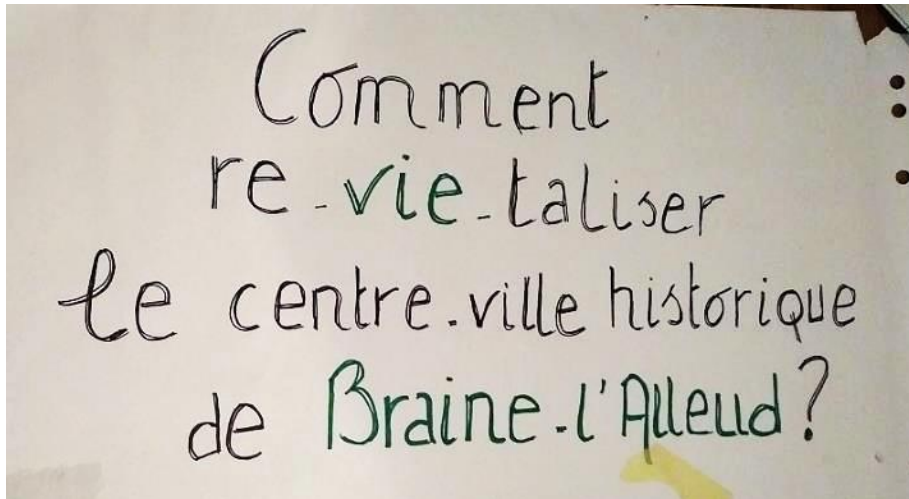 Comment
re-vie-taliser
le centre-ville historique
de Braine-l'Alleud ?